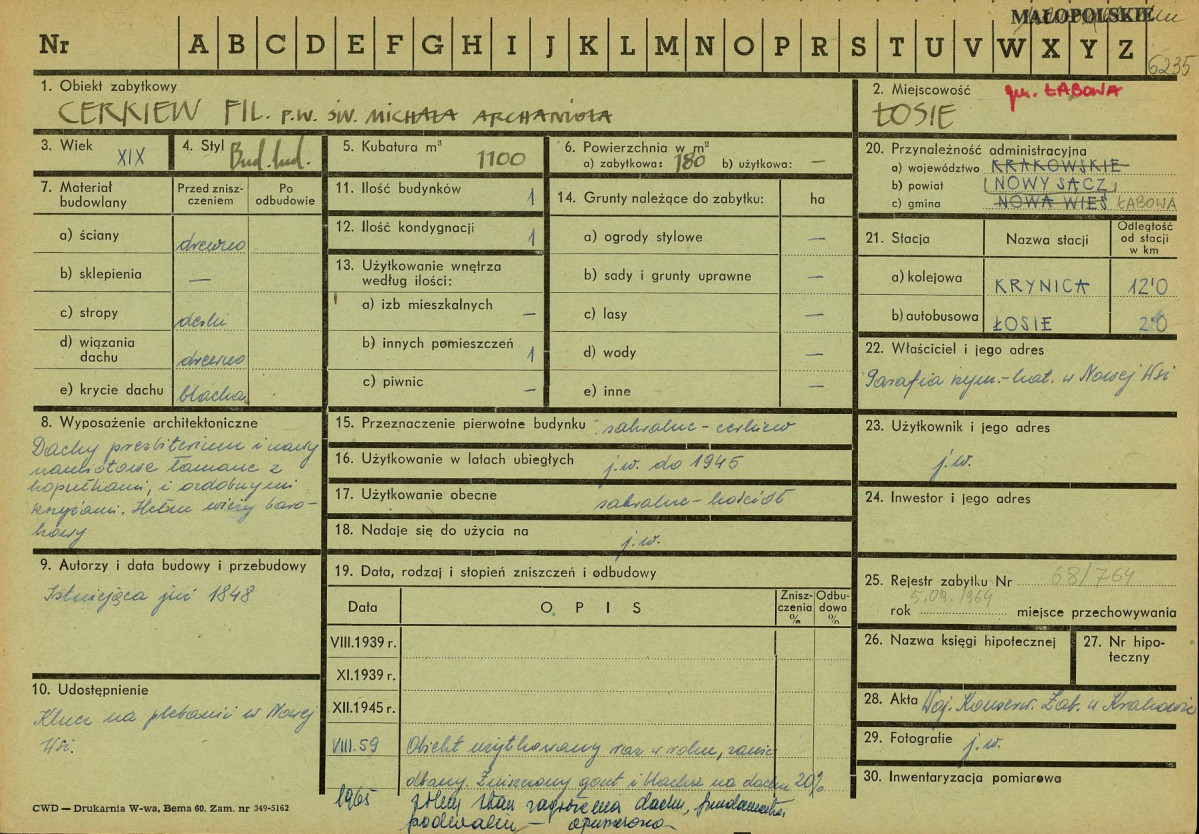 MAŁOPOLSKIE
Nr A B C D E F G H I J K L M N O P R S T U V W X Y Z 6235
1. Obiekt zabytkowy
CERKIEW FIL. P.W. ŚW. MICHAŁA ARCHANIOŁA
2. Miejscowość gm. ŁABOWA
ŁOSIE
3. Wiek XIX
4. Styl Bud. lud.
5. Kubatura m³ 1100
6. Powierzchnia w m²
a) zabytkowa: 180 b) użytkowa: —
20. Przynależność administracyjna
a) województwo KRAKOWSKIE
b) powiat NOWY SĄCZ
c) gmina NOWA WIEŚ ŁABOWA
7. Materiał budowlany
Przed zniszczeniem
Po odbudowie
a) ściany drewno
b) sklepienia —
c) stropy deski
d) wiązania dachu drewno
e) krycie dachu blacha
11. Ilość budynków 1
12. Ilość kondygnacji 1
13. Użytkowanie wnętrza
według ilości:
a) izb mieszkalnych —
b) innych pomieszczeń 1
c) piwnic —
14. Grunty należące do zabytku: ha
a) ogrody stylowe —
b) sady i grunty uprawne —
c) lasy —
d) wody —
e) inne —
21. Stacja Nazwa stacji Odległość od stacji w km
a) kolejowa KRYNICA 12'0
b) autobusowa ŁOSIE 2'0
22. Właściciel i jego adres
Parafia rzym.-kat. w Nowej Wsi
8. Wyposażenie architektoniczne
Dachy prezbiterium i nawy
namiotowe łamane z
kopułkami, i ozdobnymi
krzyżami. Hełm wieży baro-
kowy
15. Przeznaczenie pierwotne budynku sakralne - cerkiew
16. Użytkowanie w latach ubiegłych j.w. do 1945
17. Użytkowanie obecne sakralne - kościół
18. Nadaje się do użycia na j.w.
23. Użytkownik i jego adres
j.w.
24. Inwestor i jego adres
9. Autorzy i data budowy i przebudowy
Istniejąca już 1848
19. Data, rodzaj i stopień zniszczeń i odbudowy
Data OPIS Zniszczenia % Odbudowa %
VIII.1939 r.
XI.1939 r.
XII.1945 r.
VIII.59 Obiekt użytkowany raz w roku, zanie
dbany. Zniszczony gont i blacha na dachu 20%
1965 zły stan zagrożenia dachu, fundamentów
podwalin —
25. Rejestr zabytku Nr 68/764
rok 5.09.1964 miejsce przechowywania
26. Nazwa księgi hipotecznej
27. Nr hipoteczny
10. Udostępnienie
Klucz na plebanii w Nowej
Wsi.
28. Akta Woj. Konserw. Zab. w Krakowie
29. Fotografie j.w.
30. Inwentaryzacja pomiarowa
CWD — Drukarnia W-wa, Bema 60. Zam. nr 349-5162